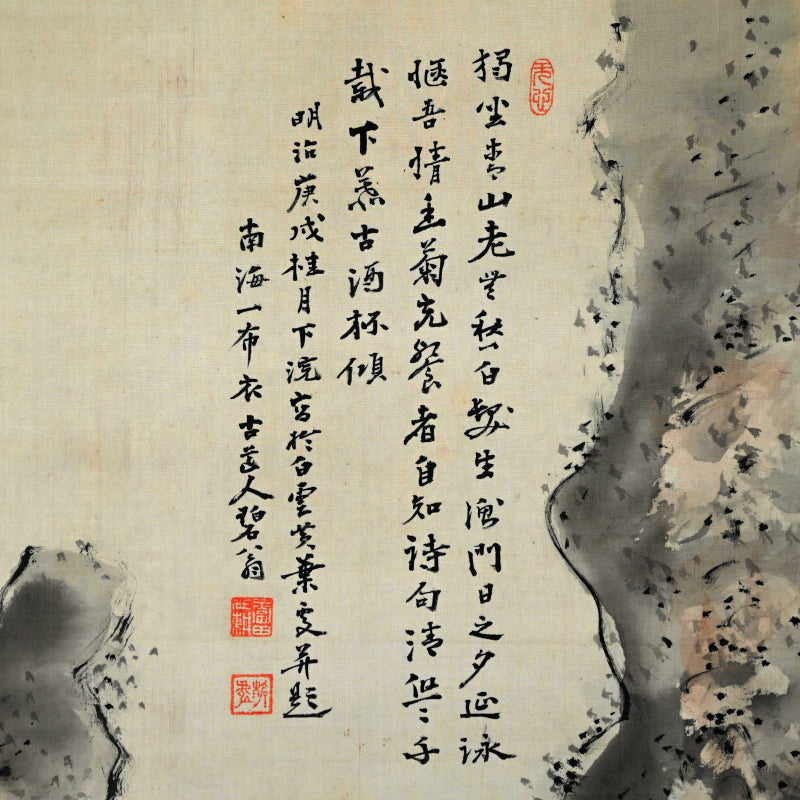 獨坐青山老無愁白髮生衡門日之夕延詠
愜吾情色菊充餐者自知詩句清但々千
載下慕古酒杯傾
明治庚戌桂月下浣寫於白雲黄葉處并題
南海一布衣古 人碧翁